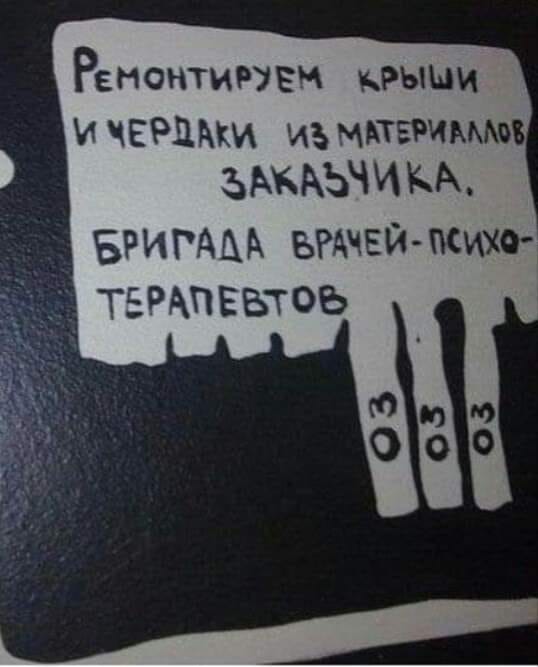 Ремонтируем крыши
и чердаки из материаллов
заказчика.
Бригада врачей-психо-
терапевтов
03
03
03